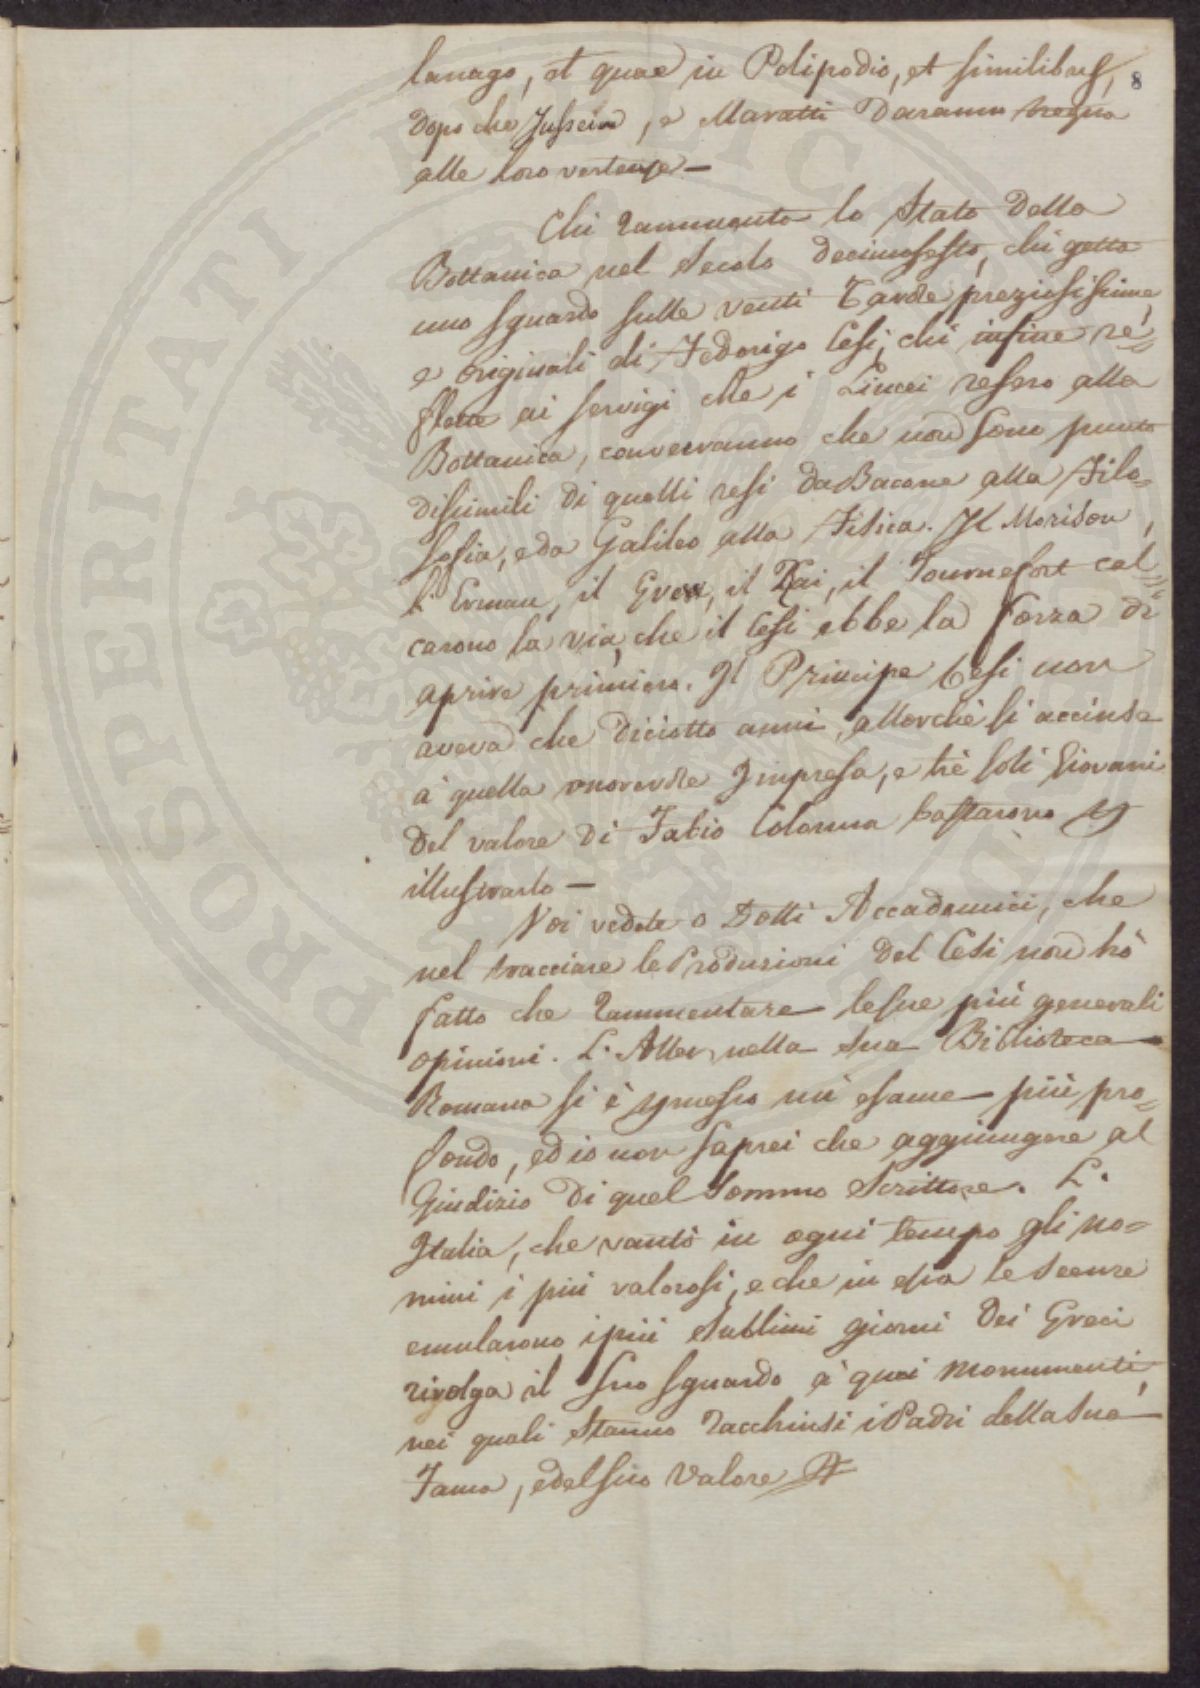 lanago, et quae in Polipodio, et similibus, 8
dopo che Jussein, e Maratti daranno tregua
alle loro vertenze —
Chi rammenta lo Stato della
Bottanica nel Secolo decimosesto, chi getta
uno sguardo sulle venti Tavole preziosissime,
e originali di Federigo Cesi, chi infine re=
flette ai servigi che i Lincei resero alla
Bottanica, converranno che non sono punto
dissimili di quelli resi da Bacone alla Filo=
sofia, e da Galileo alla Fisica. Il Morison,
l'Erman, il Grew, il Rai, il Tournefort cal=
carono la via, che il Cesi ebbe la forza di
aprire primiero. Il Principe Cesi non
aveva che diciotto anni, allorchè si accinse
à quella onorevole Impresa, e trè soli Giovani
del valore di Fabio Colonna bastarono
illustrarlo —
Voi vedete o Dotti Accademici, che
nel tracciare le Produzioni del Cesi non hò
fatto che rammentare le sue più generali
opinioni. L'Aller nella sua Biblioteca
Romana si è messo un esame più pro=
fondo, ed io non saprei che aggiungere al
Giudizio di quel Sommo Scrittore. L'
Italia, che vantò in ogni tempo gli uo=
mini i più valorosi, e che in essa le Scenze
emularono i più sublimi giorni dei Greci
rivolga il suo sguardo à quei monumenti,
nei quali stanno racchiusi i Padri della sua
Fama, e del suo valore